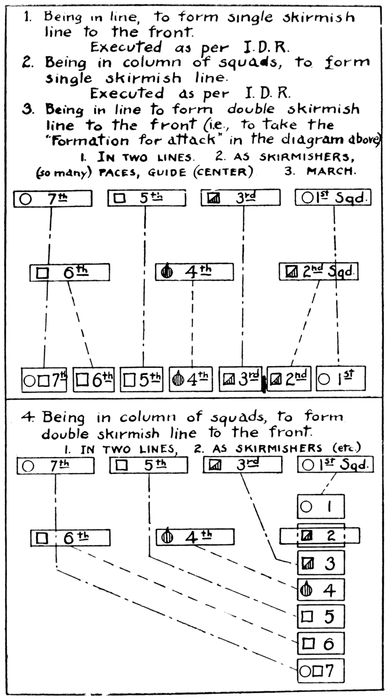 1. Being in line, to form single skirmish
line to the front.
Executed as per I.D.R.
2. Being in column of squads, to form
single skirmish line.
Executed as per I.D.R.
3. Being in line to form double skirmish
line to the front (i.e., to take the
"Formation for attack" in the diagram above)
1. IN TWO LINES. 2. AS SKIRMISHERS,
(so many) PACES, GUIDE (CENTER) 3. MARCH.
7th 5th 3rd 1st Sqd.
6th 4th 2nd Sqd.
7th 6th 5th 4th 3rd 2nd 1st
4. Being in column of squads, to form
double skirmish line to the front.
1. IN TWO LINES, 2. AS SKIRMISHERS (etc)
7th 5th 3rd 1st Sqd.
1
6th 4th 2
3
4
5
6
7